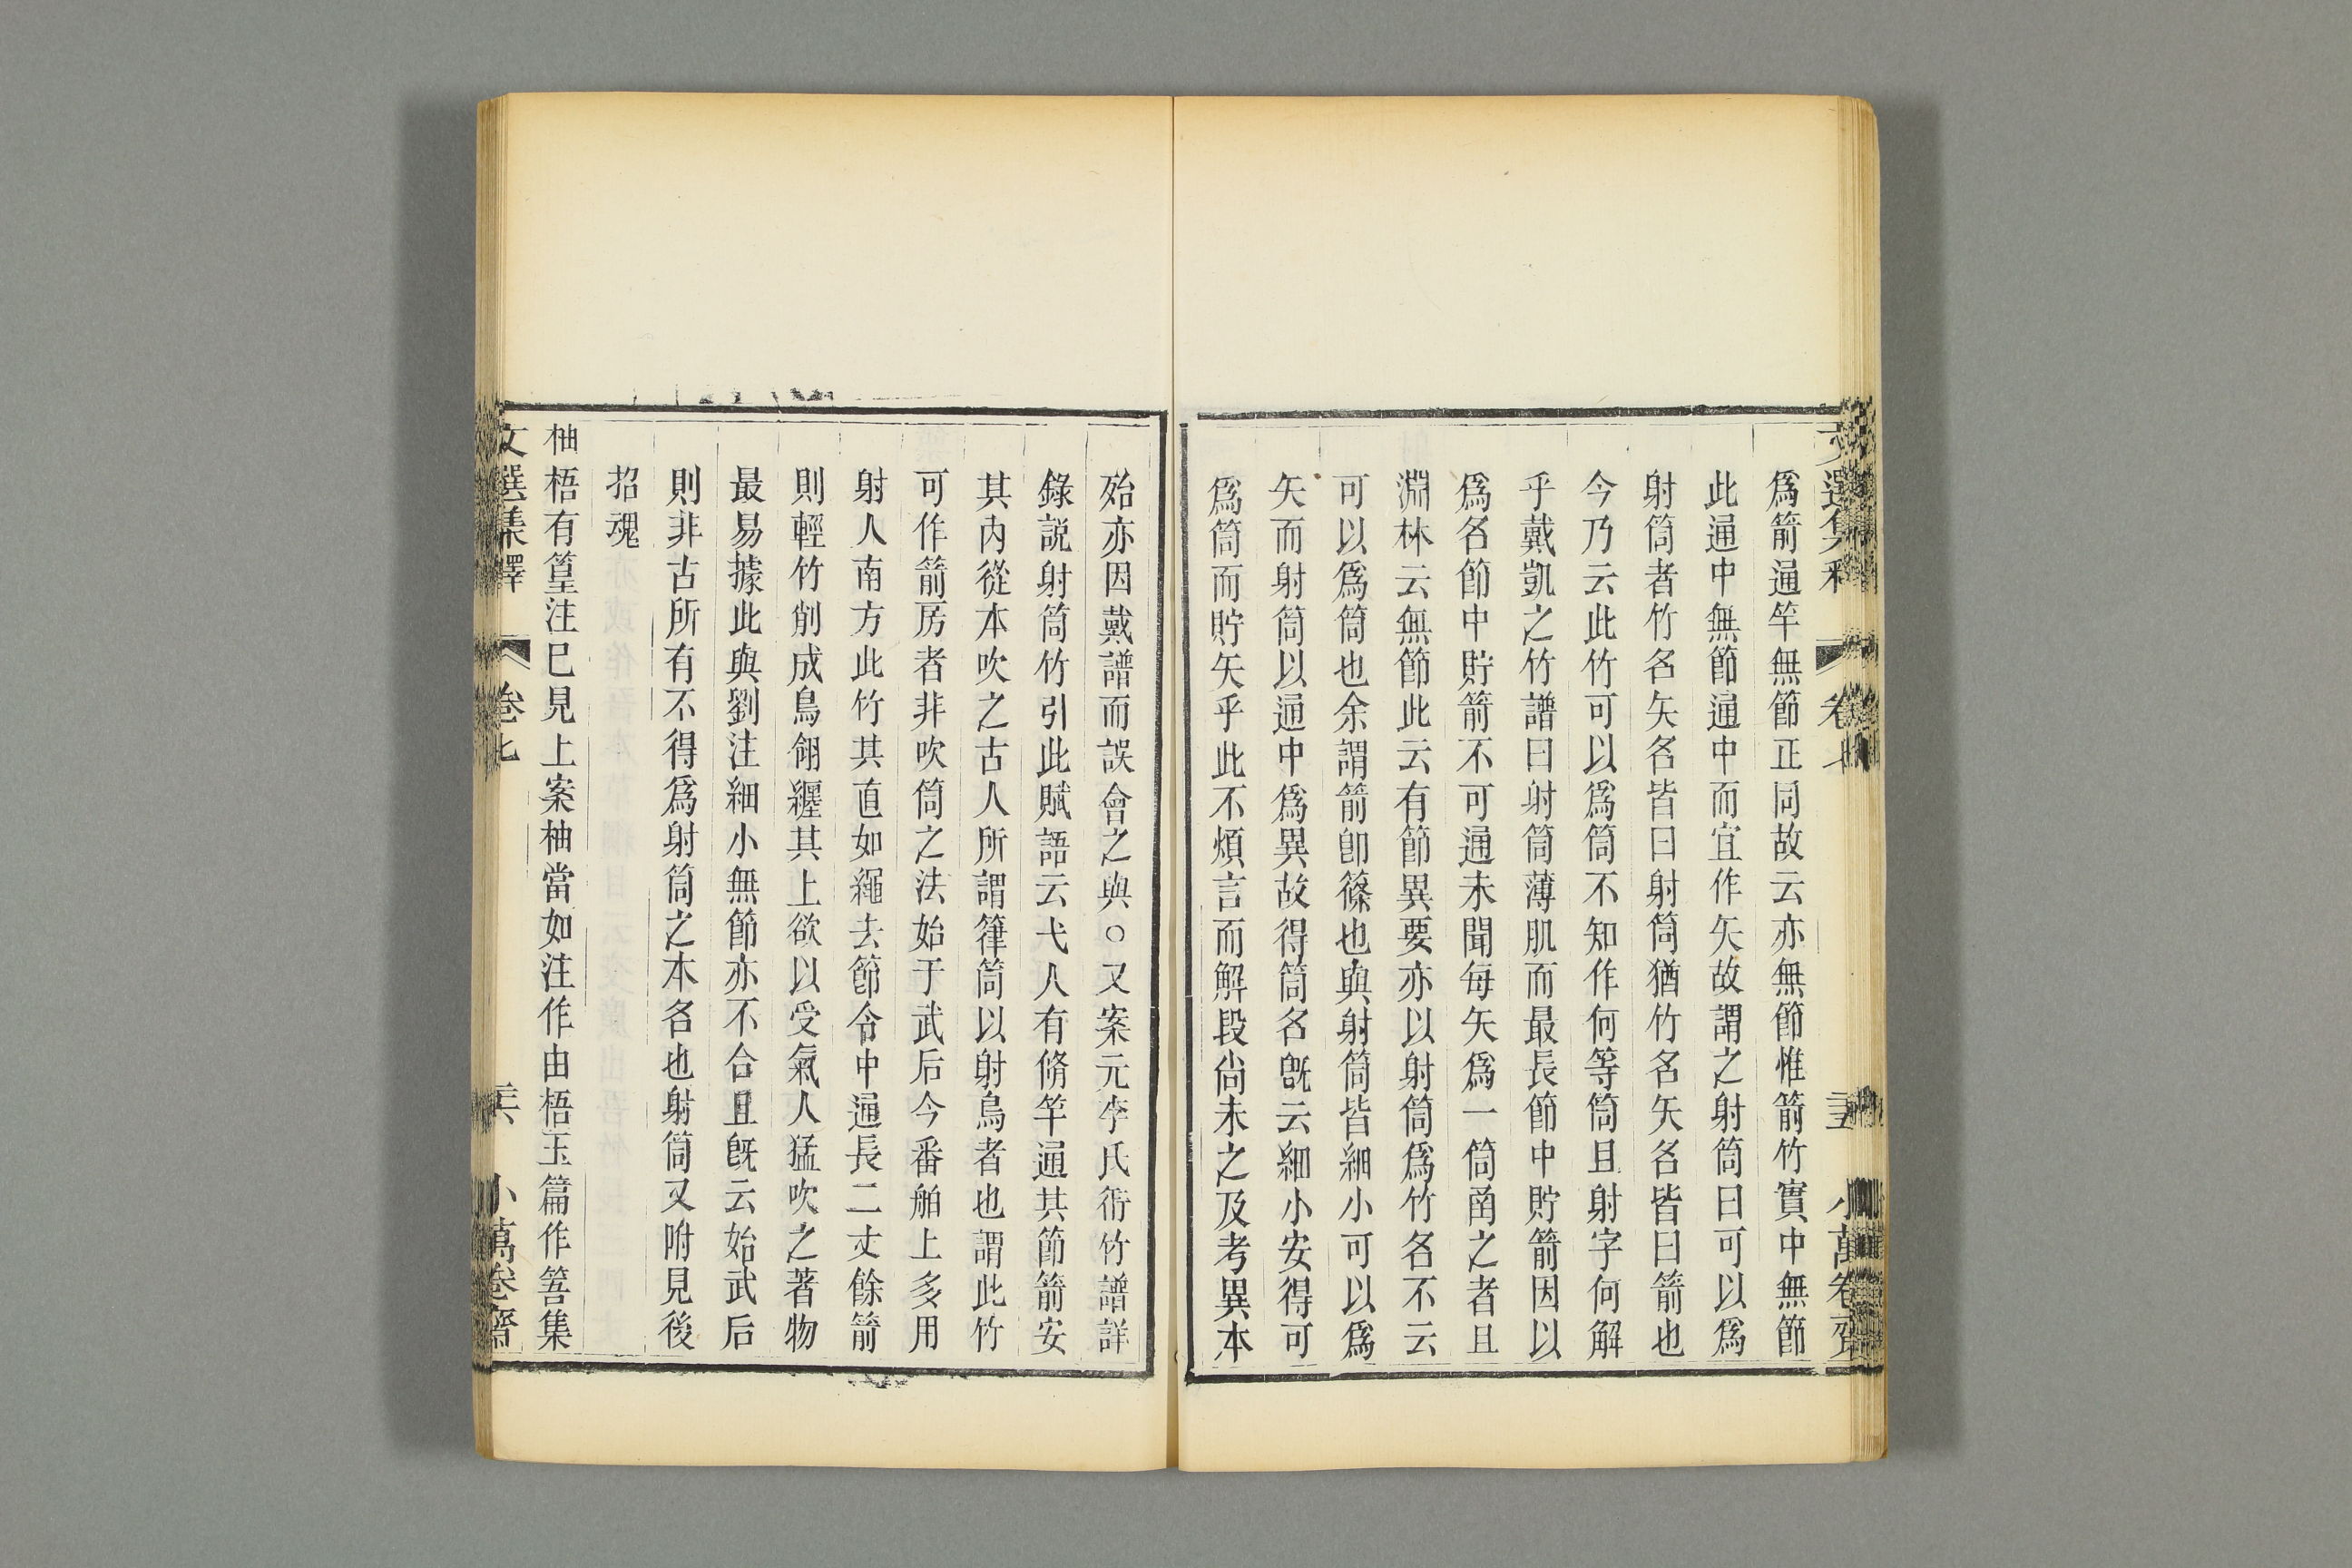 爲箭通竿無節正同故云亦無節惟箭竹實中無節
此通中無節通中而宜作矢故謂之射筒曰可以爲
射筒者竹名矢名皆曰射筒猶竹名矢名皆曰箭也
今乃云此竹可以爲筒不知作何等筒且射字何解
乎戴凱之竹譜曰射筒薄肌而最長節中貯箭因以
爲名節中貯箭不可通未聞每矢爲一筒函之者且
淵林云無節此云有節異要亦以射筒爲竹名不云
可以爲筒也余謂箭卽篠也與射筒皆細小可以爲
矢而射筒以通中爲異故得筒名旣云細小安得可
爲筒而貯矢乎此不煩言而解段尙未之及考異本
殆亦因戴譜而誤會之與○又案元李氏衎竹譜詳
錄說射筒竹引此賦語云弋人有脩竿通其節箭安
其內從本吹之古人所謂箻筒以射鳥者也謂此竹
可作箭房者非吹筒之法始于武后今番舶上多用
射人南方此竹其直如繩去節令中通長二丈餘箭
則輕竹削成鳥翎纒其上欲以受氣人猛吹之著物
最易據此與劉注細小無節亦不合且旣云始武后
則非古所有不得爲射筒之本名也射筒又附見後
招魂
柚梧有篁注已見上案柚當如注作由梧玉篇作筶集
文選集釋 卷七 小萬卷齋